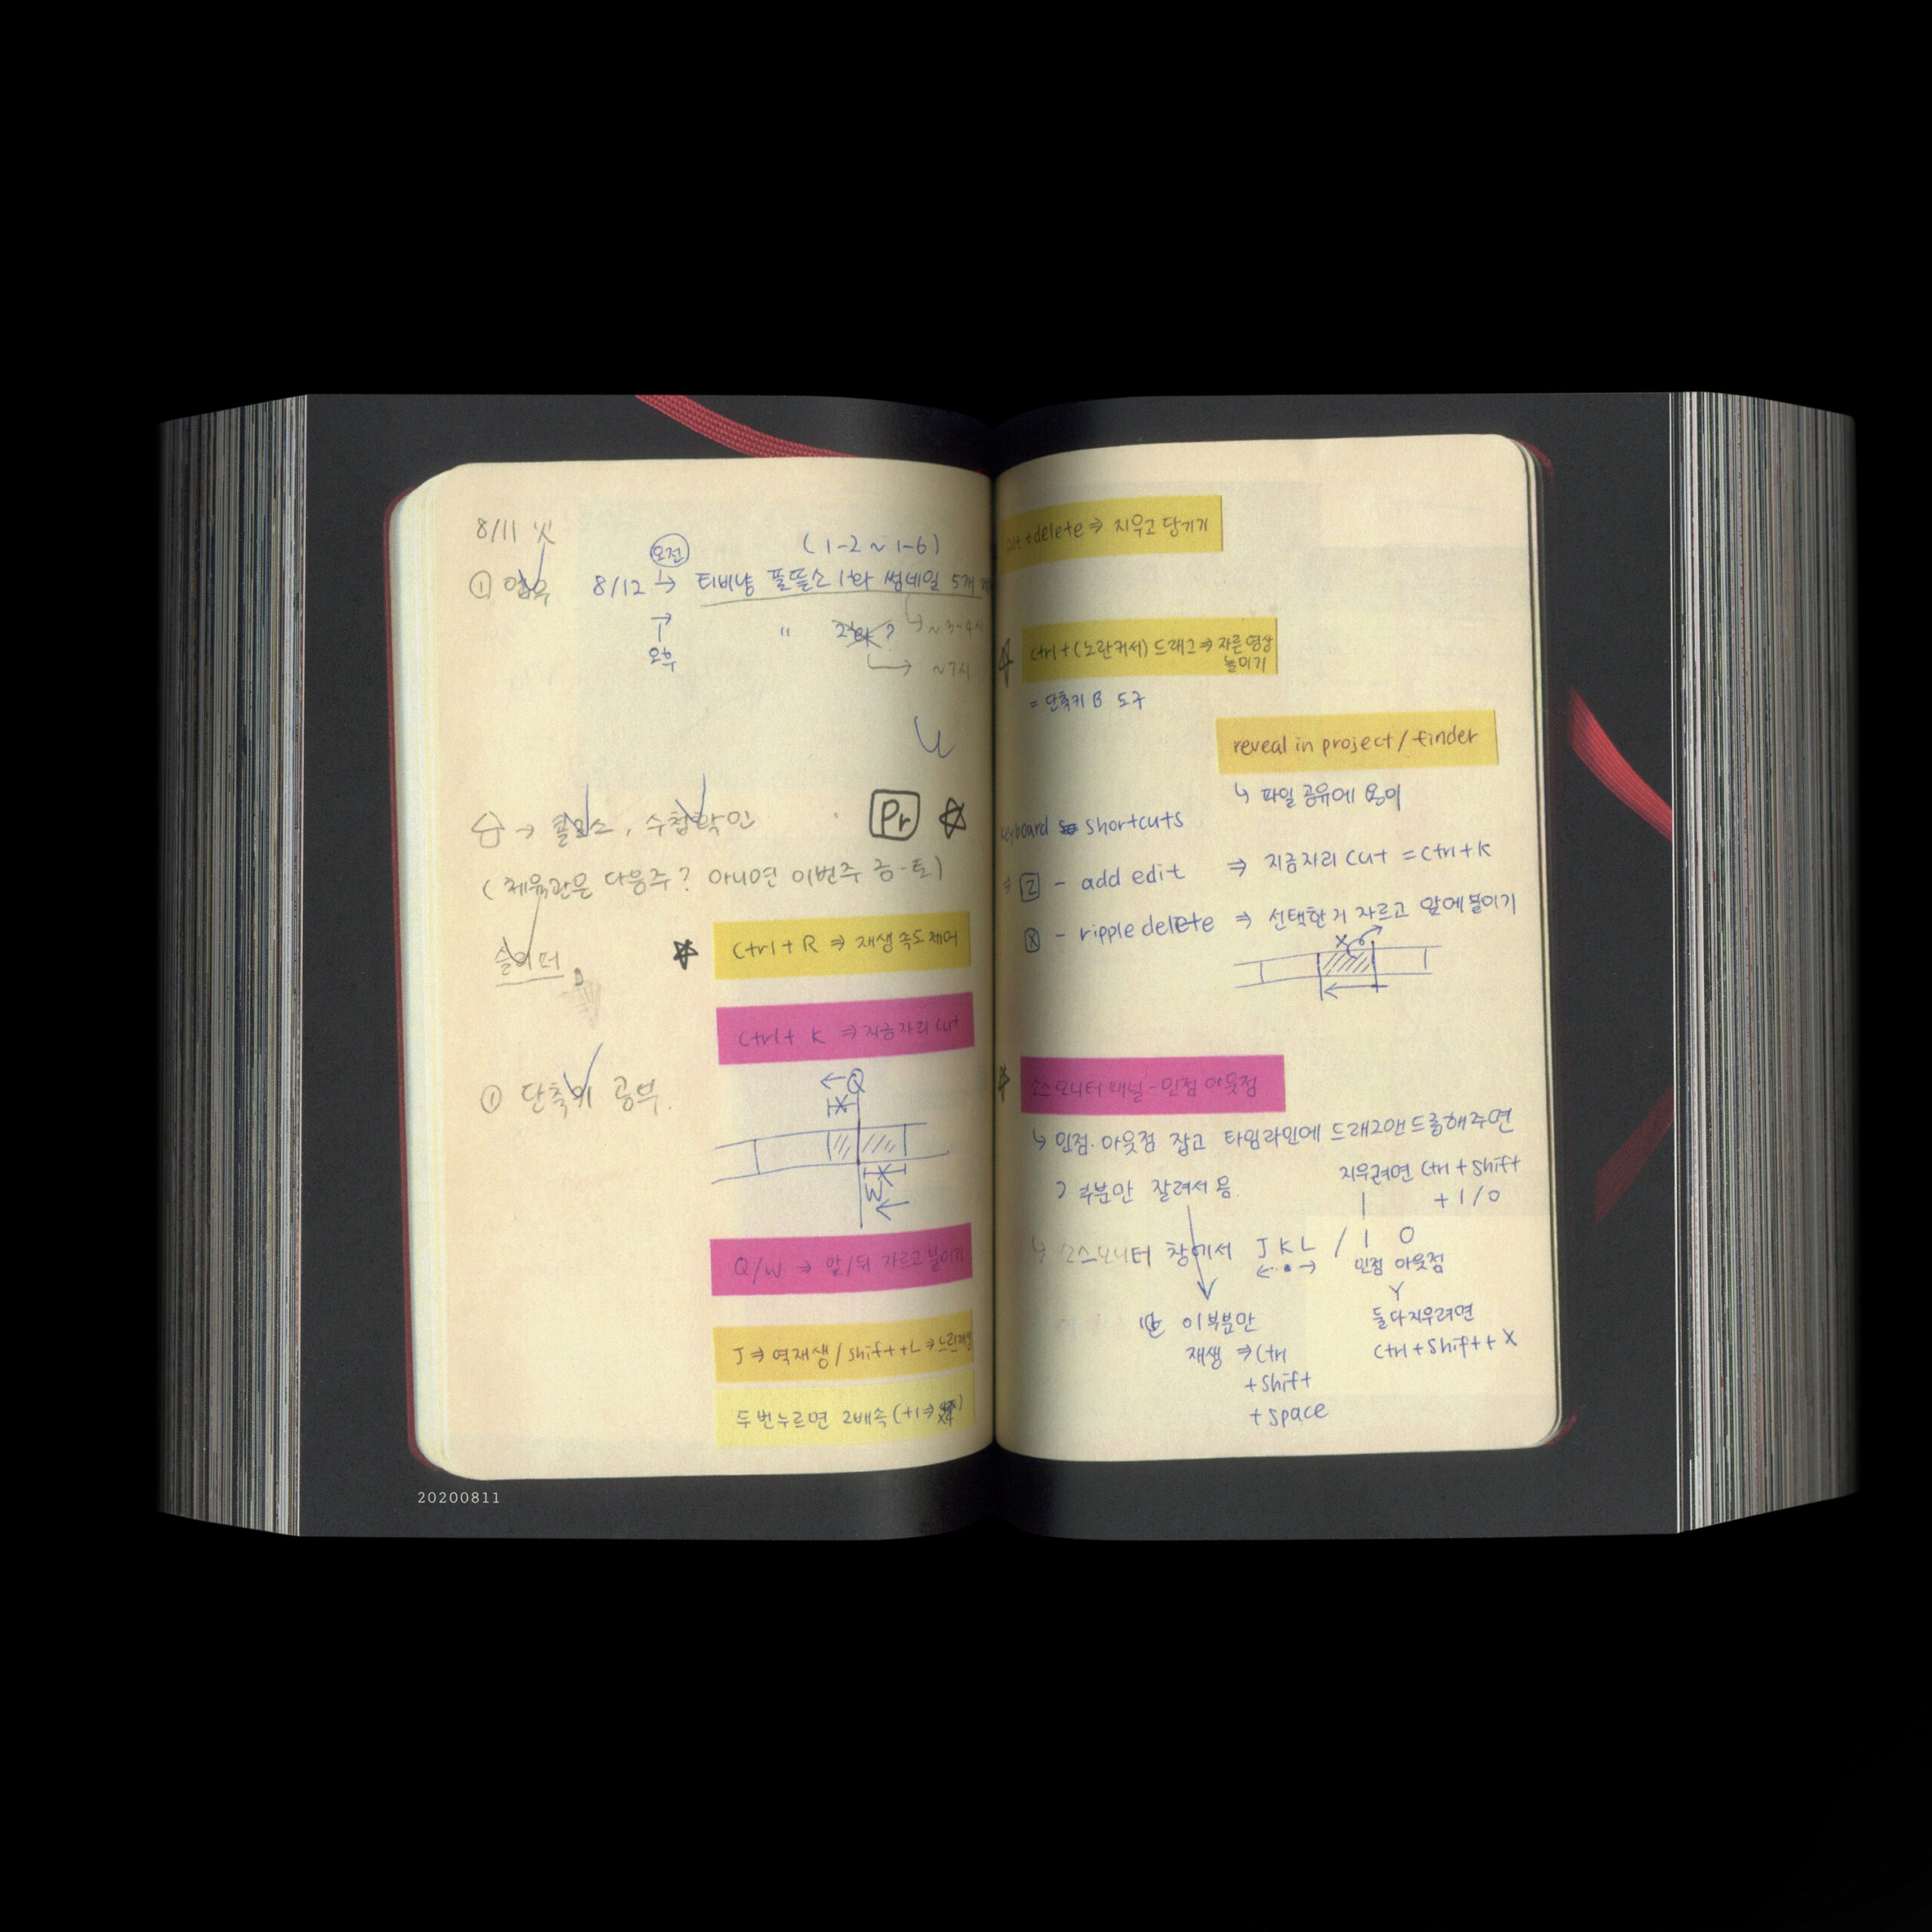 8/11 火
① 업무 8/12 → 티비냥 풀뜯소 1화 썸네일 5개
오전
(1-2 ~ 1-6)
오후
" 2화? ~3-4시
~7시
→ 콜미소, 수첩확인
(체육관은 다음주? 아니면 이번주 금-토)
슬리퍼
① 단축키 공부.
Pr
Ctrl + R ⇒ 재생속도제어
Ctrl + K ⇒ 지금자리 cut
←Q
W
Q/W ⇒ 앞/뒤 자르고 붙이기
J ⇒ 역재생 / shift + L ⇒ 느린재생
두번누르면 2배속 (+1⇒ x4)
20200811
+delete ⇒ 지우고 당기기
ctrl + (노란커서) 드래그 ⇒ 자른영상
붙이기
= 단축키 B 도구
reveal in project / finder
↳ 파일 공유에 용이
keyboard shortcuts
⇒ Z - add edit ⇒ 지금자리 cut = ctrl + K
X - ripple delete ⇒ 선택한거 자르고 앞에붙이기
X
소스모니터 패널 - 인점 아웃점
↳ 인점. 아웃점 잡고 타임라인에 드래그앤드롭해주면
그 부분만 잘려서 옴
지우려면 ctrl + shift
+ I / O
↳ 소스모니터 창에서 J K L / I O
인점 아웃점
이부분만
재생 ⇒ Ctrl
+ shift
+ space
둘다지우려면
ctrl + shift + X